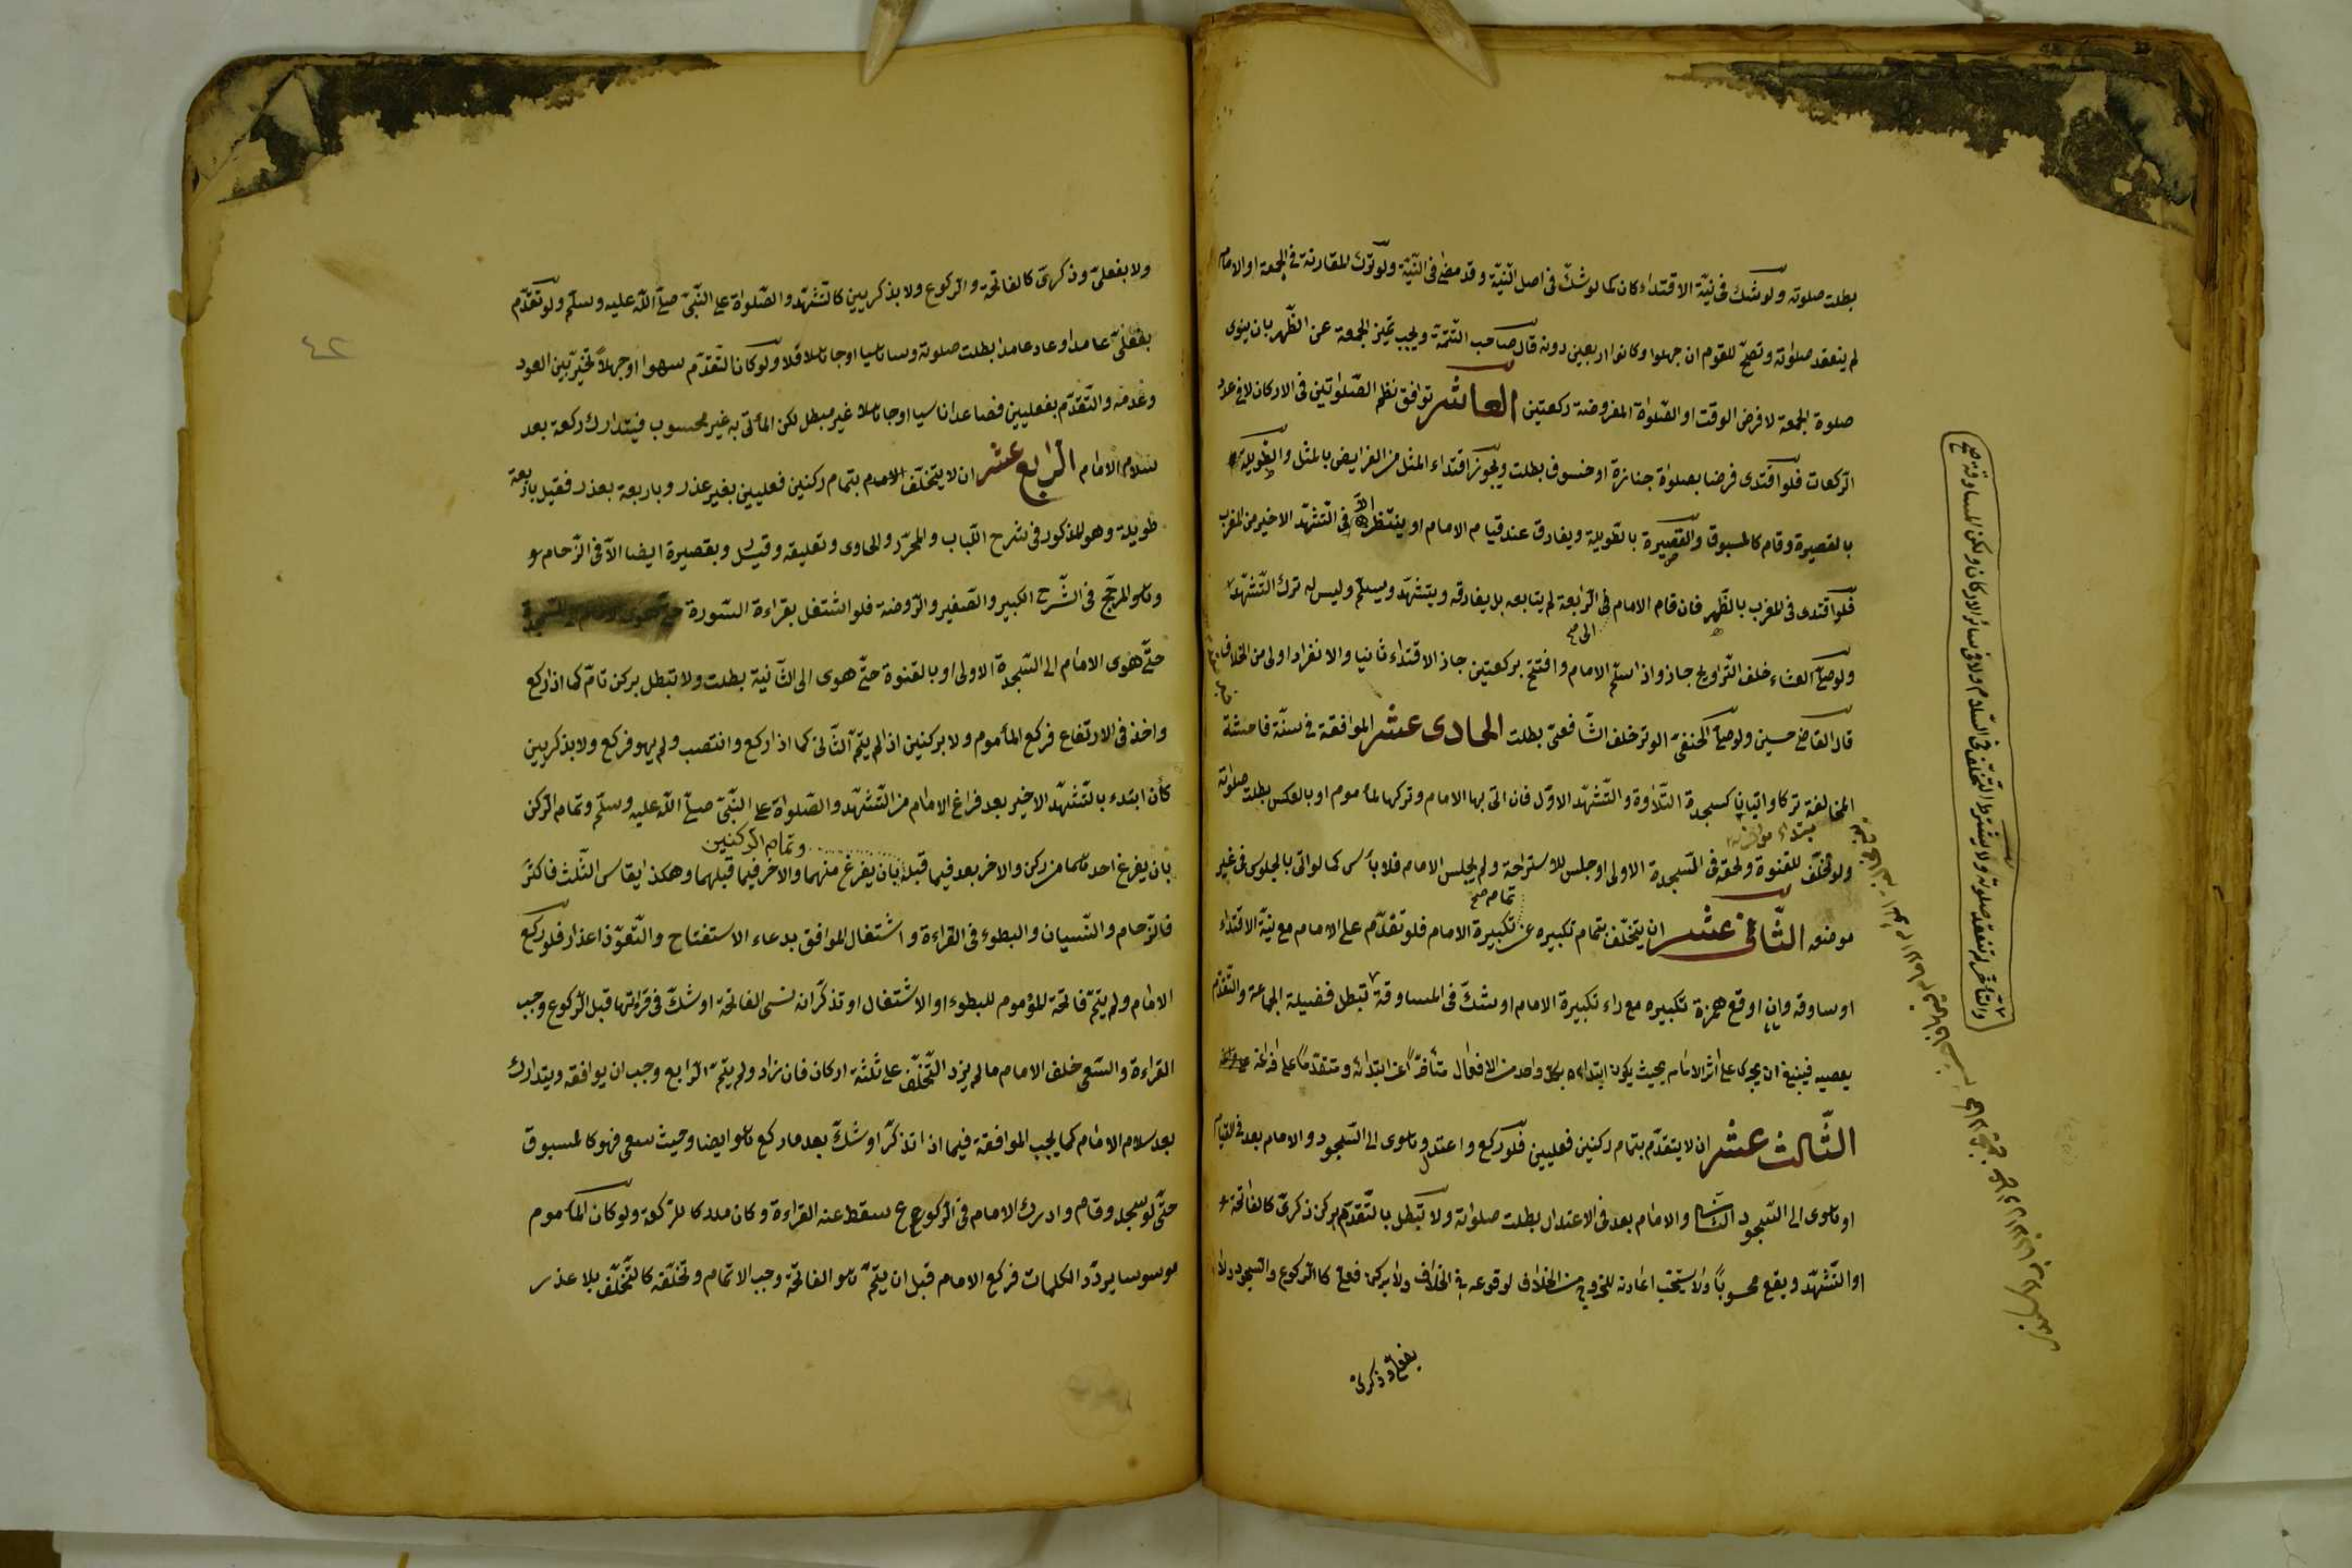 بطلت صلوته ولو شك فى نيّة الاقتداء كان كما لو شكّ فى اصل النيّة وقد مضى فى النّيّة ولو ترك المقارنة فى الجمعة او الامام
لم ينعقد صلوته وتصحّ للقوم ان جهلوا وكانوا اربعين دونه قال صاحب التّتمّة ويجب تميز الجمعة عن الظّهر بان ينوى
صلوة الجمعة لا فرض الوقت او الصّلواة المفروضة ركعتين العاشر توافق نظم الصّلواتين فى الاركان لا فى عدد
الرّكعات فلو اقتدى فرضا بصلواة جنازة او خسوف بطلت ويجوز اقتداء المثل من الفرايض بالمثل والطّويلة
بالقصيرة وقام كالمسبوق والقصيرة بالطّويلة ويفارق عند قيام الامام او ينتظر الّا فى التّشهّد الاخير من المغرب
فلو اقتدى فى المغرب بالظّهر فان قام الامام الى الرّابعة لم يتابعه بل يفارقه ويتشهّد ويسلّم وليس له ترك التّشهّد
الى صح
ولو صلّى العشاء خلف التّراويح جاز واذا سلّم الامام وافتتح بركعتين جاز الاقتداء ثانيا والانفراد اولى من الخلاف
قال القاضى حسين ولو صلّى الحنفىّ الوتر خلف الشّافعىّ بطلت الحادى عشر الموافقة فى سنّة فاحشة
المخالفة تركا واتيانا كسجدة التّلاوة والتّشهّد الاوّل فان اتى بها الامام وتركها المأموم او بالعكس بطلت صلوته
ولو تخلّف للقنوة ولحقه فى السّجدة الاولى او جلس للاستراحة ولم يجلس الامام فلا بأس كما لو اتى بالجلوس فى غير
تمام صح
موضعه الثّانى عشر ان يتخلّف بتمام تكبيره عن تكبيرة الامام فلو تقدّم على الامام مع نيّة الاقتداء
او ساوقه وان اوقع همزة تكبيره مع راء تكبيرة الامام او شكّ فى المساوقة تبطل فضيلة الجماعة والتقدّم
يعصيه فينبغى ان يجرى على اثر الامام بحيث يكون ابتداءه بكل واحد من الافعال متأخّرًا عن ابتدائه ومتقدّمًا على فراغه
الثّالث عشر ان لا يتقدّم بتمام ركنين فعليين فلو ركع واعتدل وهوى الى السّجود والامام بعد فى القيام
او هوى الى السّجود الثّانى والامام بعد فى الاعتدال بطلت صلواته ولا تبطل بالتّقدّم بركن ذكرىّ كالفاتحة
او التّشهّد ويقع محسوبًا ولا يستحب اعادته للخروج من الخلاف لوقوعه فى الخلاف ولا بركن فعلىّ كالرّكوع والسّجود ولا
بفعلىّ وذكرىّ
والتّأخّر لم تنعقد صلوته ولا يشترط التّخلّف فى السّلام ولا فى سائر الاركان ولكن المساوقة صح
٤٢
ولا بفعلىّ وذكرىّ كالفاتحة والرّكوع ولا بذكريين كالتّشهّد والصّلواة على النّبىّ صلّى اللّه عليه وسلّم ولو تقدّم
بفعلىّ عامدا وعاد عامدا بطلت صلوته وساهيا او جاهلا فلا ولو كان التّقدّم سهوا او جهلًا تخيّر بين العود
وعدمه والتّقدّم بفعليين فصاعدا ناسيا او جاهلا غير مبطل لكن المأتى به غير محسوب فيتدارك ركعة بعد
سلام الامام الرّابع عشر ان لا يتخلّف الامام بتمام ركنين فعليين بغير عذر وباربعة بعذر فقيل باربعة
طويلة وهو المذكور فى شرح اللّباب والمحرّر والحاوى وتعليقه وقيل وبقصيرة ايضا الّا فى الزّحام
وهو المرجّح فى الشّرح الكبير والصّغير والرّوضة فلو اشتغل بقراءة السّورة
حتّى هوى الامام الى السّجدة الاولى او بالقنوة حتّى هوى الى الثّانية بطلت ولا تبطل بركن تامّ كما اذا ركع
واخذ فى الارتفاع فركع المأموم ولا بركنين اذا لم يتمّ الثّانى كما اذا ركع وانتصب ولم يهو فركع ولا بذكريين
كأن ابتدء بالتّشهّد الاخير بعد فراغ الامام من التّشهّد والصّلواة على النّبىّ صلّى اللّه عليه وسلّم وتمام الرّكن
وتمام الرّكنين
بان يفرغ احدهما من ركن والاخر بعد فيما قبله بان يفرغ منهما والاخر فيما قبلهما وهكذا يقاس الثّلث فاكثر
فالزّحام والنّسيان والبطوء فى القراءة واشتغال الموافق بدعاء الاستفتاح والتّعوّذ اعذار فلو ركع
الامام ولم يتمّ فاتحة المؤموم للبطوء او الاشتغال او تذكّر ان نسى الفاتحة او شكّ فى قرائتها قبل الرّكوع وجب
القراءة والسّعى خلف الامام ما لم يزد التّخلّف على ثلثة اركان فان زاد ولم يتمّ الرّابع وجب ان يوافقه ويتدارك
بعد سلام الامام كما يجب الموافقة فيما اذا تذكّر او شكّ بعد ما ركع هو ايضا وحيث سعى فهو كالمسبوق
حتّى لو سجد وقام وادرك الامام فى الرّكوع سقط عنه القراءة وكان مدركا للرّكعة ولو كان المأموم
موسوسا يردّد الكلمات فركع الامام قبل ان يتمّ هو الفاتحة وجب الاتمام وتخلّفه كالتّخلّف بلا عذر